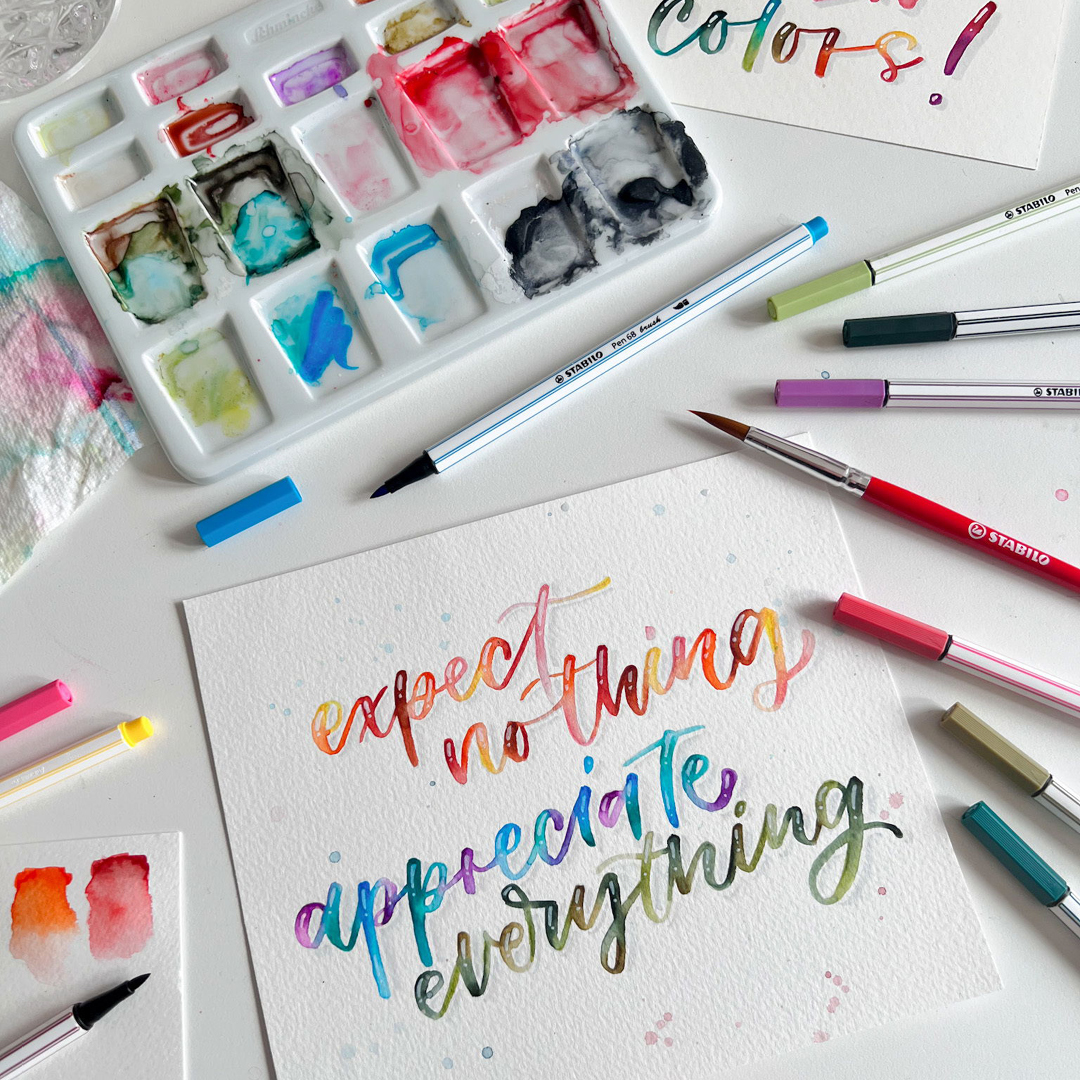 colors!
STABILO Pen
STABILO Pen 68 brush
STABILO
STABILO
expect
nothing
appreciate
everything